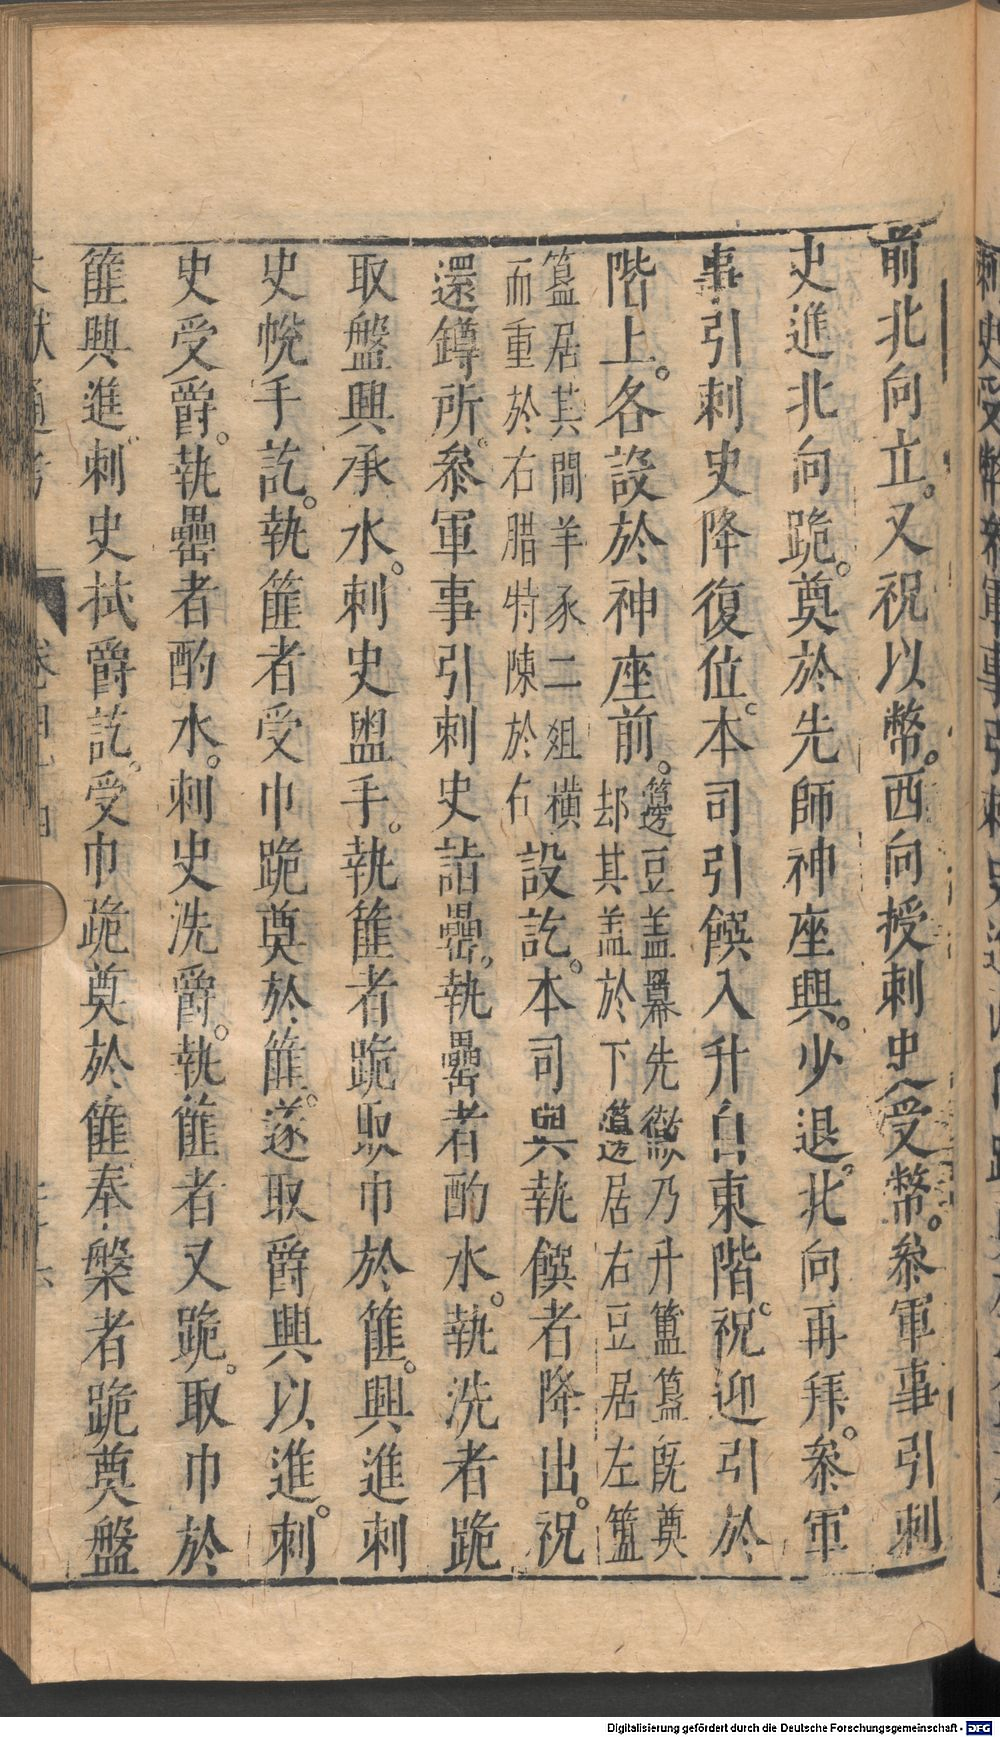 前北向立。又祝以幣。西向授刺史。受幣。叅軍事引刺
史進北向跪。奠於先師神座興。少退。北向再拜。叅軍
事引刺史降復位。本司引饌入升自東階。祝迎引於
階上。各設於神座前。籩豆盖羃先徹乃升簠簋旣奠
却其盖於下籩居右豆居左簠
簋居其間羊豕二俎橫
而重於右腊特陳於右設訖。本司與執饌者降出。祝
還鐏所。叅軍事引刺史詣罍。執罍者酌水。執洗者跪
取盤興承水。刺史盥手。執篚者跪取巾於篚。興進刺
史帨手訖。執篚者受巾跪奠於篚。遂取爵興以進。刺
史受爵。執罍者酌水。刺史洗爵。執篚者又跪。取巾於
篚興進刺史拭爵訖。受巾跪奠於篚奉槃者跪奠盤
Digitalisierung gefördert durch die Deutsche Forschungsgemeinschaft - DFG